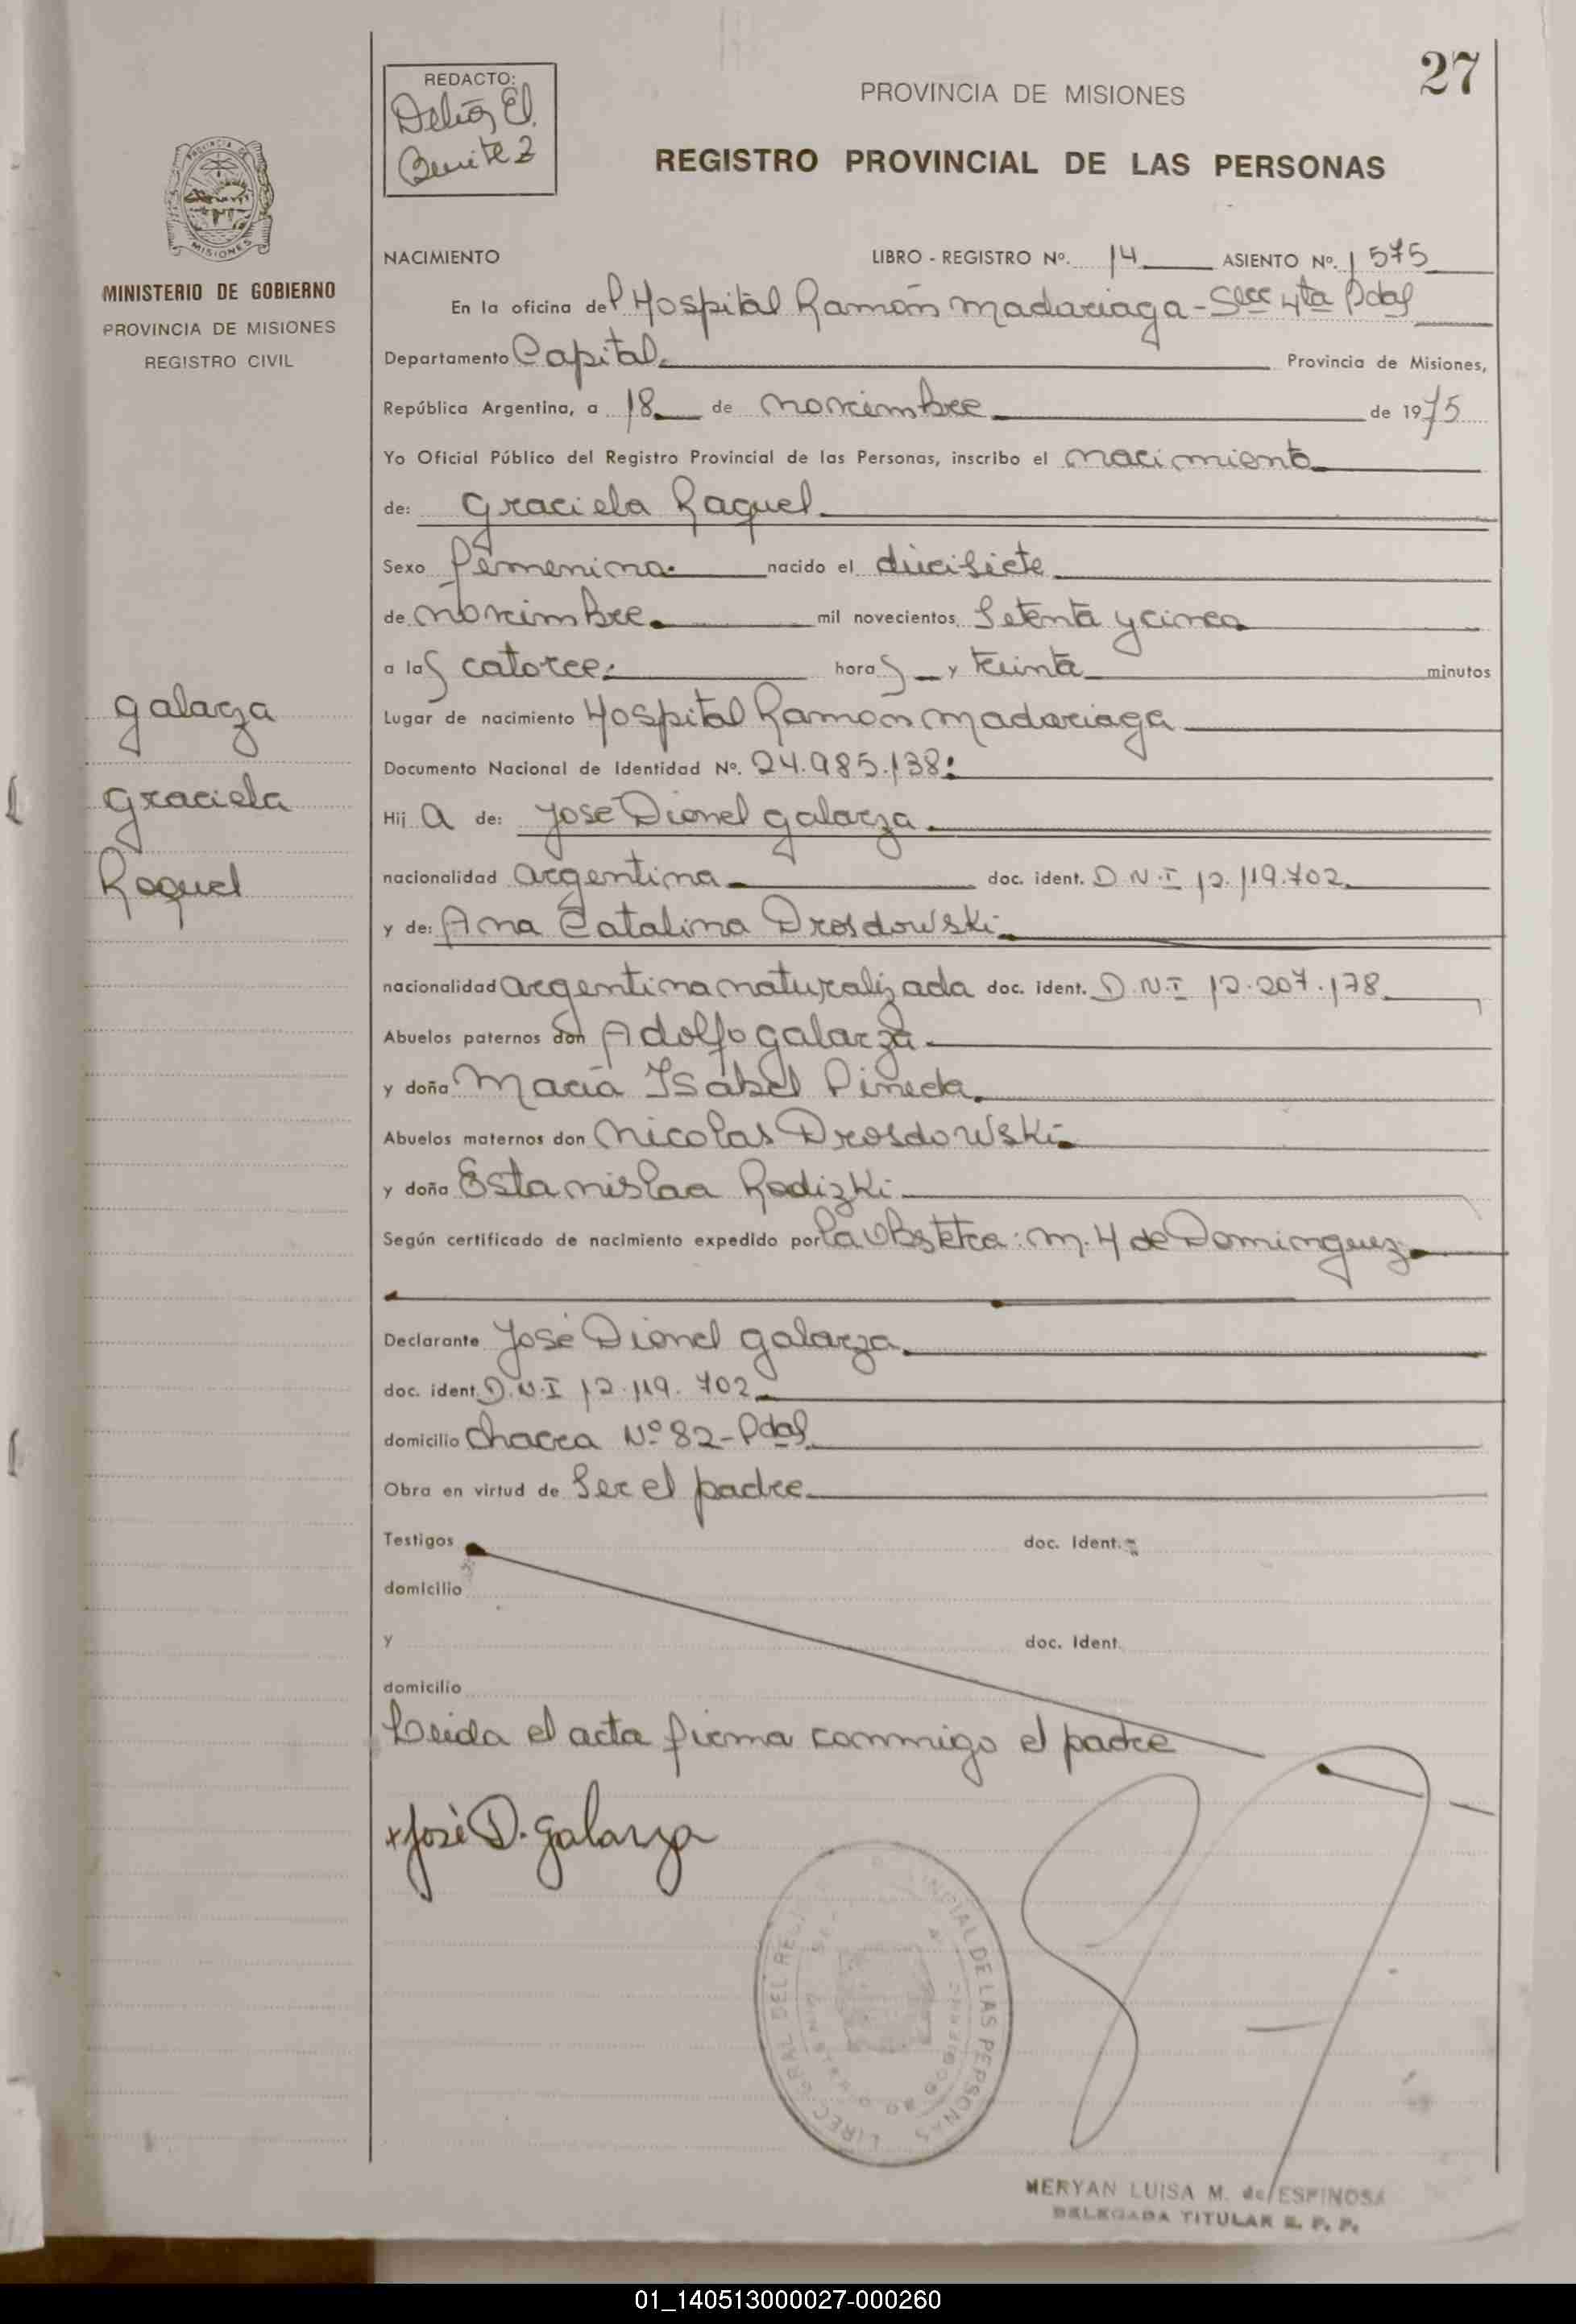 27
REDACTO:
Delia El.
Benitez
PROVINCIA DE MISIONES
REGISTRO PROVINCIAL DE LAS PERSONAS
MISIONES
MINISTERIO DE GOBIERNO
PROVINCIA DE MISIONES
REGISTRO CIVIL
NACIMIENTO LIBRO - REGISTRO Nº. 14 ASIENTO Nº. 1575
En la oficina del Hospital Ramón Madariaga - Secc 4ta Pdas
Departamento Capital. Provincia de Misiones,
República Argentina, a 18 de noviembre de 1975
Yo Oficial Público del Registro Provincial de las Personas, inscribo el nacimiento
de: Graciela Raquel
Sexo femenina nacido el diecisiete
de noviembre. mil novecientos setenta y cinco
a las catorce. horas y treinta minutos
Lugar de nacimiento Hospital Ramon Madariaga
Documento Nacional de Identidad Nº. 24.985.138.
Hija de: José Dionel Galarza
nacionalidad argentina doc. ident. D.N.I 12.119.702
y de: Ana Catalina Drosdowski
nacionalidad argentina naturalizada doc. ident. D.N.I 12.207.178
Abuelos paternos don Adolfo Galarza
y doña María Isabel Pineda
Abuelos maternos don Nicolas Drosdowski
y doña Estanislaa Rodizki
Según certificado de nacimiento expedido por la Obstetra: M. H de Dominguez
Declarante José Dionel Galarza
doc. ident. D.N.I 12.119.702
domicilio chacra Nº 82 - Pdas
Obra en virtud de ser el padre
Testigos doc. Ident.
domicilio
y doc. Ident.
domicilio
Leida el acta firma conmigo el padre
x José D. Galarza
Galarza
Graciela
Raquel
MERYAN LUISA M. de ESPINOSA
DELEGADA TITULAR R. P. P.
01_140513000027-000260